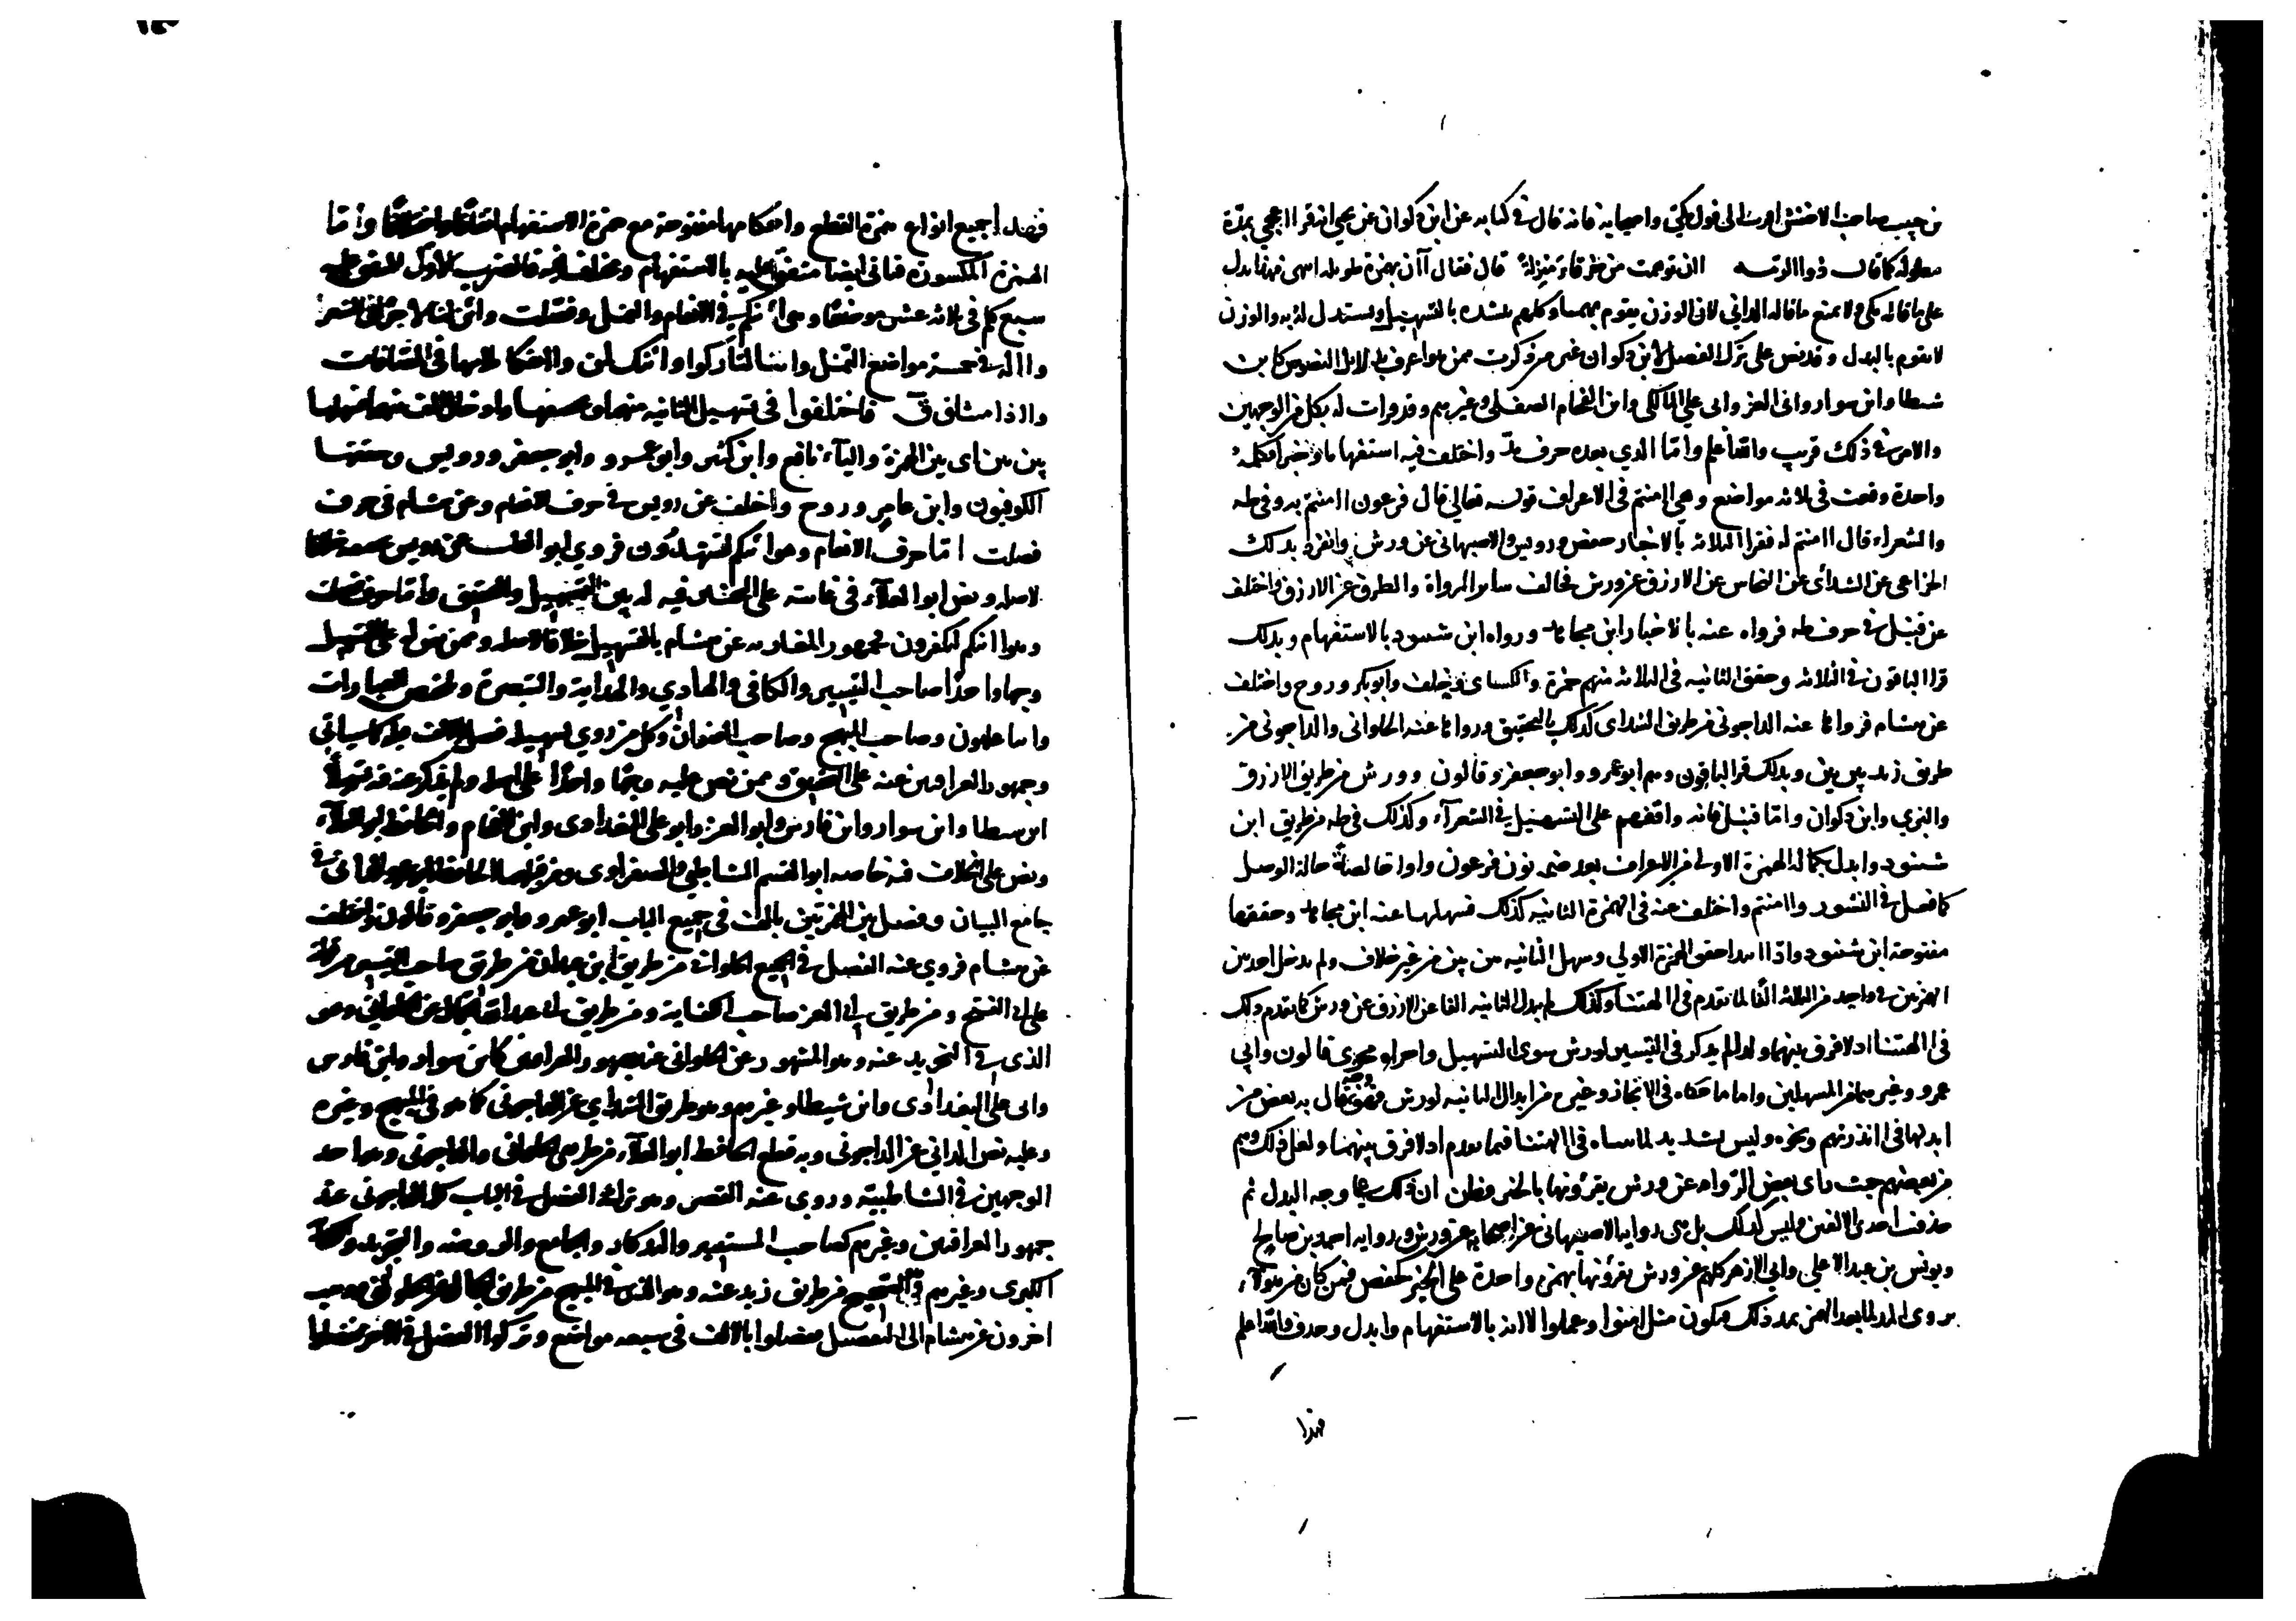 بن حبيب صاحب الاخفش اقرب الى قول مكي واصحابه فانه قال في كتابه عن ابن ذكوان عن يحيى انه قرا ااعجمي بمدة
مطولة كما قال ذو الرمة اان توهمت من خرقاء منزلة قال فقال اان بهمزة طويلة انتهى فهذا يدل
على ما قاله مكي ولا يمنع ما قاله الداني لان الوزن يقوم بهما وكلهم ينشده بالتسهيل ويستدل له به والوزن
لا يقوم بالبدل وقد نص على ترك الفصل لابن ذكوان غير من ذكرت ممن هو اعرف بدلايل النصوص كابن
شيطا وابن سوار وابي العز وابي علي المالكي وابن الفحام الصقلي وغيرهم وقد قرات له بكل من الوجهين
والامر في ذلك قريب والله اعلم واما الذي بعده حرف مد واختلف فيه استفهاما وخبرا فكلمة
واحدة وقعت في ثلاثة مواضع وهي اامنتم في الاعراف قوله تعالى قال فرعون اامنتم به وفي طه
والشعراء قال اامنتم له فقرا الثلاثة بالاخبار حفص ورويس والاصبهاني عن ورش وانفرد بذلك
الخزاعي عن الشذائي عن النخاس عن الازرق عن ورش فخالف ساير الرواة والطرق عن الازرق واختلف
عن قنبل في حرف طه فرواه عنه بالاخبار ابن مجاهد ورواه ابن شنبوذ بالاستفهام وبذلك
قرا الباقون في الثلاثة وحقق الثانية في الثلاثة منهم حمزة والكسائي وخلف وابو بكر وروح واختلف
عن هشام فرواها عنه الداجوني من طريق الشذائي كذلك بالتحقيق ورواها عنه الحلواني والداجوني من
طريق زيد بين بين وبذلك قرا الباقون وهم ابو عمرو وابو جعفر وقالون وورش من طريق الازرق
والبزي وابن ذكوان واما قنبل فانه وافقهم على التسهيل في الشعراء وكذلك في طه من طريق ابن
شنبوذ وابدل بكماله الهمزة الاولى من الاعراف بعد ضمة نون فرعون واوا خالصة حالة الوصل
كما فعل في النشور واامنتم واختلف عنه في الهمزة الثانية كذلك فسهلها عنه ابن مجاهد وحققها
مفتوحة ابن شنبوذ واذا ابتدا حقق الهمزة الاولى وسهل الثانية بين بين من غير خلاف ولم يدخل احد بين
الهمزتين في واحد من الثلاثة الفا لما تقدم في االهتنا وكذلك لم يبدل الثانية الفا عن الازرق عن ورش كما تقدم ذلك
في االهتنا اذ لا فرق بينهما ولهذا لم يذكر في التيسير لورش سوى التسهيل واجراه مجرى قالون وابي
عمرو وغيرهما من المسهلين واما ما حكاه في الايجاز وغيره من ابدال الثانية لورش فهو وجه قال به بعض من
ابدلها في اانذرتهم ونحوه وليس بسديد لما بيناه في االهتنا فيما تقدم اذ لا فرق بينهما ولعل ذلك وهم
من بعضهم حيث راى بعض الرواة عن ورش يقرؤنها بالخبر فظن ان ذلك على وجه البدل ثم
حذفت احدى الالفين وليس كذلك بل هي رواية الاصبهاني عن اصحابه عن ورش ورواية احمد بن صالح
ويونس بن عبد الاعلى وابي الازهر كلهم عن ورش يقرؤنها بهمزة واحدة على الخبر كحفص فمن كان من هؤلاء
يروي المد لما بعد الهمز يمد ذلك فيكون مثل امنوا وعملوا لا انه بالاستفهام وابدل وحذف والله اعلم
فهذا
فهذا جميع انواع همزة القطع واحكامها مفتوحة مع همزة الاستفهام اتفاقا واختلافا واما
الهمزة المكسورة فتاتي ايضا متفقا عليه بالاستفهام ومختلفا فيه فالضرب الاول المتفق عليه
سبع كلم في ثلاثة عشر موضعا وهي ائنكم في الانعام والنمل وفصلت وائن لنا لاجرا في الشعراء
واله في خمسة مواضع النمل وائنا لتاركوا وائنك لمن وائفكا ثلاثتها في الصافات
وائذا متنا في ق فاختلفوا في تسهيل الثانية منهما وتحقيقها وادخال الف بينهما فسهلها
بين بين اي بين الهمزة والياء نافع وابن كثير وابو عمرو وابو جعفر ورويس وحققها
الكوفيون وابن عامر وروح واختلف عن رويس في حرف الانعام وعن هشام في حرف
فصلت اما حرف الانعام وهو ائنكم لتشهدون فروى ابو الطيب عن رويس تحقيقه خلافا
لاصله ونص ابو العلاء في غايته على التخيير فيه له بين التسهيل والتحقيق واما حرف فصلت
وهو ائنكم لتكفرون فجمهور المغاربة عن هشام بالتسهيل خلافا لاصله وممن نص له على التسهيل
وجها واحدا صاحب التيسير والكافي والهادي والهداية والتبصرة وتلخيص العبارات
وابنا غلبون وصاحب المبهج وصاحب العنوان وكل من روى تسهيله فصل بالف قبله كما سياتي
وجمهور العراقيين عنه على التحقيق وممن نص عليه وجها واحدا على اصله ولم يذكر عنه فيه تسهيلا
ابن شيطا وابن سوار وابن فارس وابو العز وابو علي البغدادي وابن الفحام والحافظ ابو العلاء
ونص على الخلاف فيه خاصة ابو القسم الشاطبي والصفراوي ومن قبلهما الحافظ ابو عمرو الداني في
جامع البيان وفصل بين الهمزتين بالف في جميع الباب ابو عمرو وابو جعفر وقالون واختلف
عن هشام فروى عنه الفصل في الجميع الحلواني من طريق ابن عبدان من طريق صاحب التيسير من قراته
على ابي الفتح ومن طريق ابي العز صاحب الكفاية ومن طريق ابي عبد الله الجمال عن الحلواني وهو
الذي في التجريد عنه وهو المشهور عن الحلواني عند جمهور العراقيين كابن سوار وابن فارس
وابي علي البغدادي وابن شيطا وغيرهم وهو طريق الشذائي عن الداجوني كما هو في المبهج وغيره
وعليه نص الداني عن الداجوني وبه قطع الحافظ ابو العلاء من طريقي الحلواني والداجوني وهو احد
الوجهين في الشاطبية وروى عنه القصر وهو ترك الفصل في الباب كله الداجوني عند
جمهور العراقيين وغيرهم كصاحب المستنير والتذكار والجامع والروضة والتجريد والكفاية
الكبرى وغيرهم وهو الصحيح من طريق زيد عنه وهو الذي في المبهج من طريق الجمال عن الحلواني وذهب
اخرون عن هشام الى التفصيل ففصلوا بالالف في سبعة مواضع وتركوا الفصل في الاخر ففصلوا